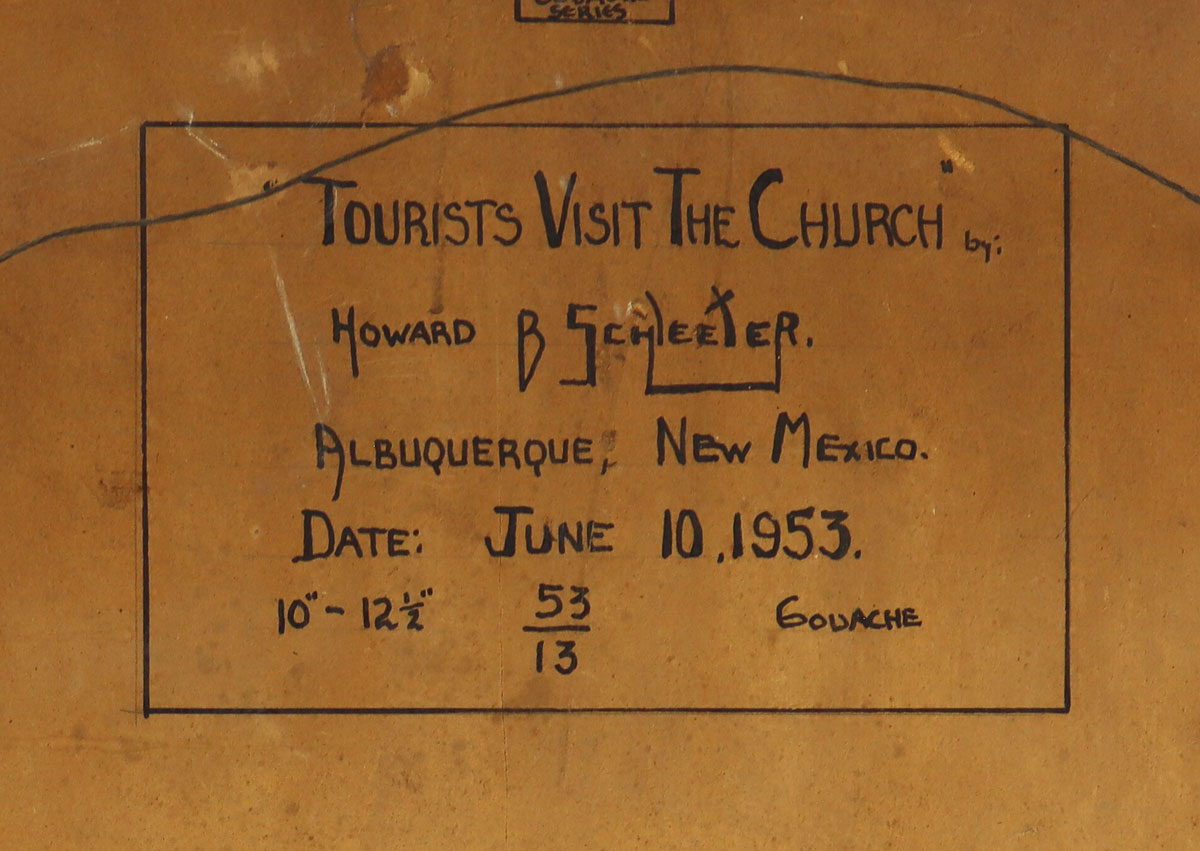 SERIES
"TOURISTS VISIT THE CHURCH" by:
HOWARD B SCHLEETER.
ALBUQUERQUE, NEW MEXICO.
DATE: JUNE 10, 1953.
10" - 12 ½" 53/13 GOUACHE